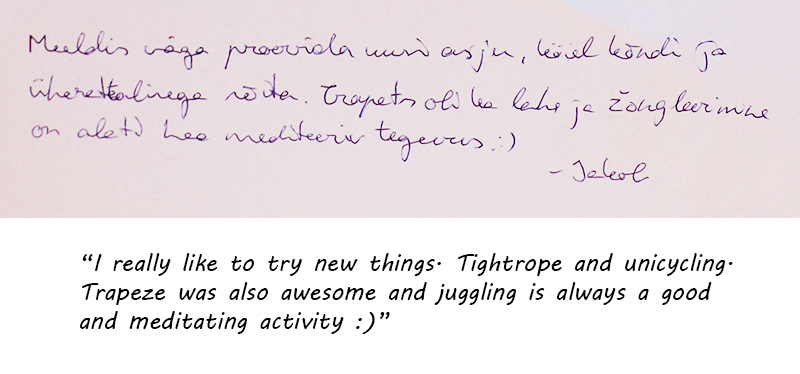 Meeldis väga proovida uusi asju, köiel kõndi ja
üherattalinega sõita. Trapets oli ka lahe ja žongleerimine
on alati hea mediteeriv tegevus :)
- Jakob
“I really like to try new things. Tightrope and unicycling.
Trapeze was also awesome and juggling is always a good
and meditating activity :)”